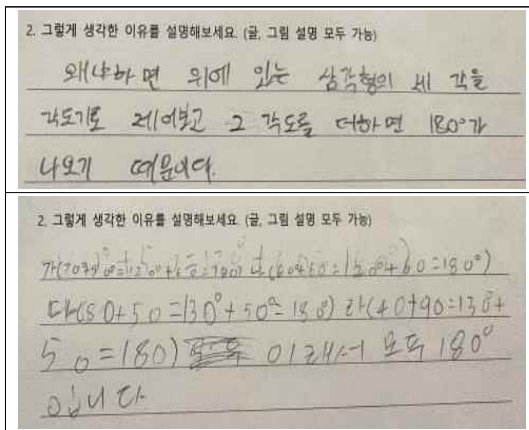 2. 그렇게 생각한 이유를 설명해보세요. (글, 그림 설명 모두 가능)
왜냐하면 위에 있는 삼각형의 세 각을
각도기로 제어보고 그 각도를 더하면 180°가
나오기 때문이다.
2. 그렇게 생각한 이유를 설명해보세요. (글, 그림 설명 모두 가능)
=180°)
다(80+50=130°+50°=180) 라(40+90=130+
50=180) 이래서 모두 180°
입니다